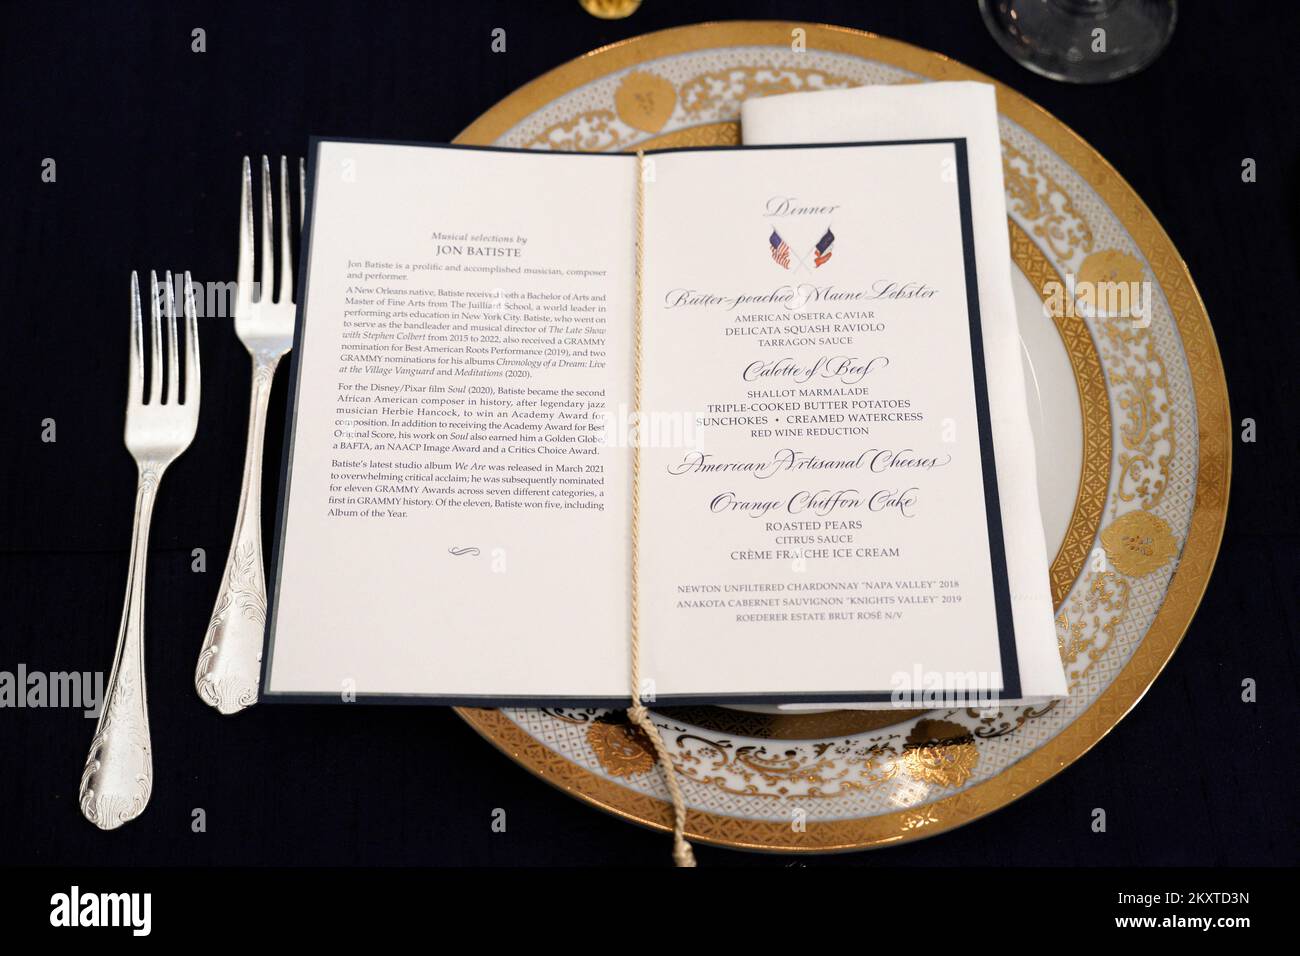 Musical selections by
JON BATISTE
Jon Batiste is a prolific and accomplished musician, composer
and performer.
A New Orleans native, Batiste received both a Bachelor of Arts and
Master of Fine Arts from The Juilliard School, a world leader in
performing arts education in New York City. Batiste, who went on
to serve as the bandleader and musical director of The Late Show
with Stephen Colbert from 2015 to 2022, also received a GRAMMY
nomination for Best American Roots Performance (2019), and two
GRAMMY nominations for his albums Chronology of a Dream: Live
at the Village Vanguard and Meditations (2020).
For the Disney/Pixar film Soul (2020), Batiste became the second
African American composer in history, after legendary jazz
musician Herbie Hancock, to win an Academy Award for
composition. In addition to receiving the Academy Award for Best
Original Score, his work on Soul also earned him a Golden Globe,
a BAFTA, an NAACP Image Award and a Critics Choice Award.
Batiste's latest studio album We Are was released in March 2021
to overwhelming critical acclaim; he was subsequently nominated
for eleven GRAMMY Awards across seven different categories, a
first in GRAMMY history. Of the eleven, Batiste won five, including
Album of the Year.
Dinner
Butter-poached Maine Lobster
AMERICAN OSETRA CAVIAR
DELICATA SQUASH RAVIOLO
TARRAGON SAUCE
Calotte of Beef
SHALLOT MARMALADE
TRIPLE-COOKED BUTTER POTATOES
SUNCHOKES • CREAMED WATERCRESS
RED WINE REDUCTION
American Artisanal Cheeses
Orange Chiffon Cake
ROASTED PEARS
CITRUS SAUCE
CRÈME FRAÎCHE ICE CREAM
NEWTON UNFILTERED CHARDONNAY "NAPA VALLEY" 2018
ANAKOTA CABERNET SAUVIGNON "KNIGHTS VALLEY" 2019
ROEDERER ESTATE BRUT ROSÉ N/V
alamy
Image ID: 2KXTD3N
www.alamy.com